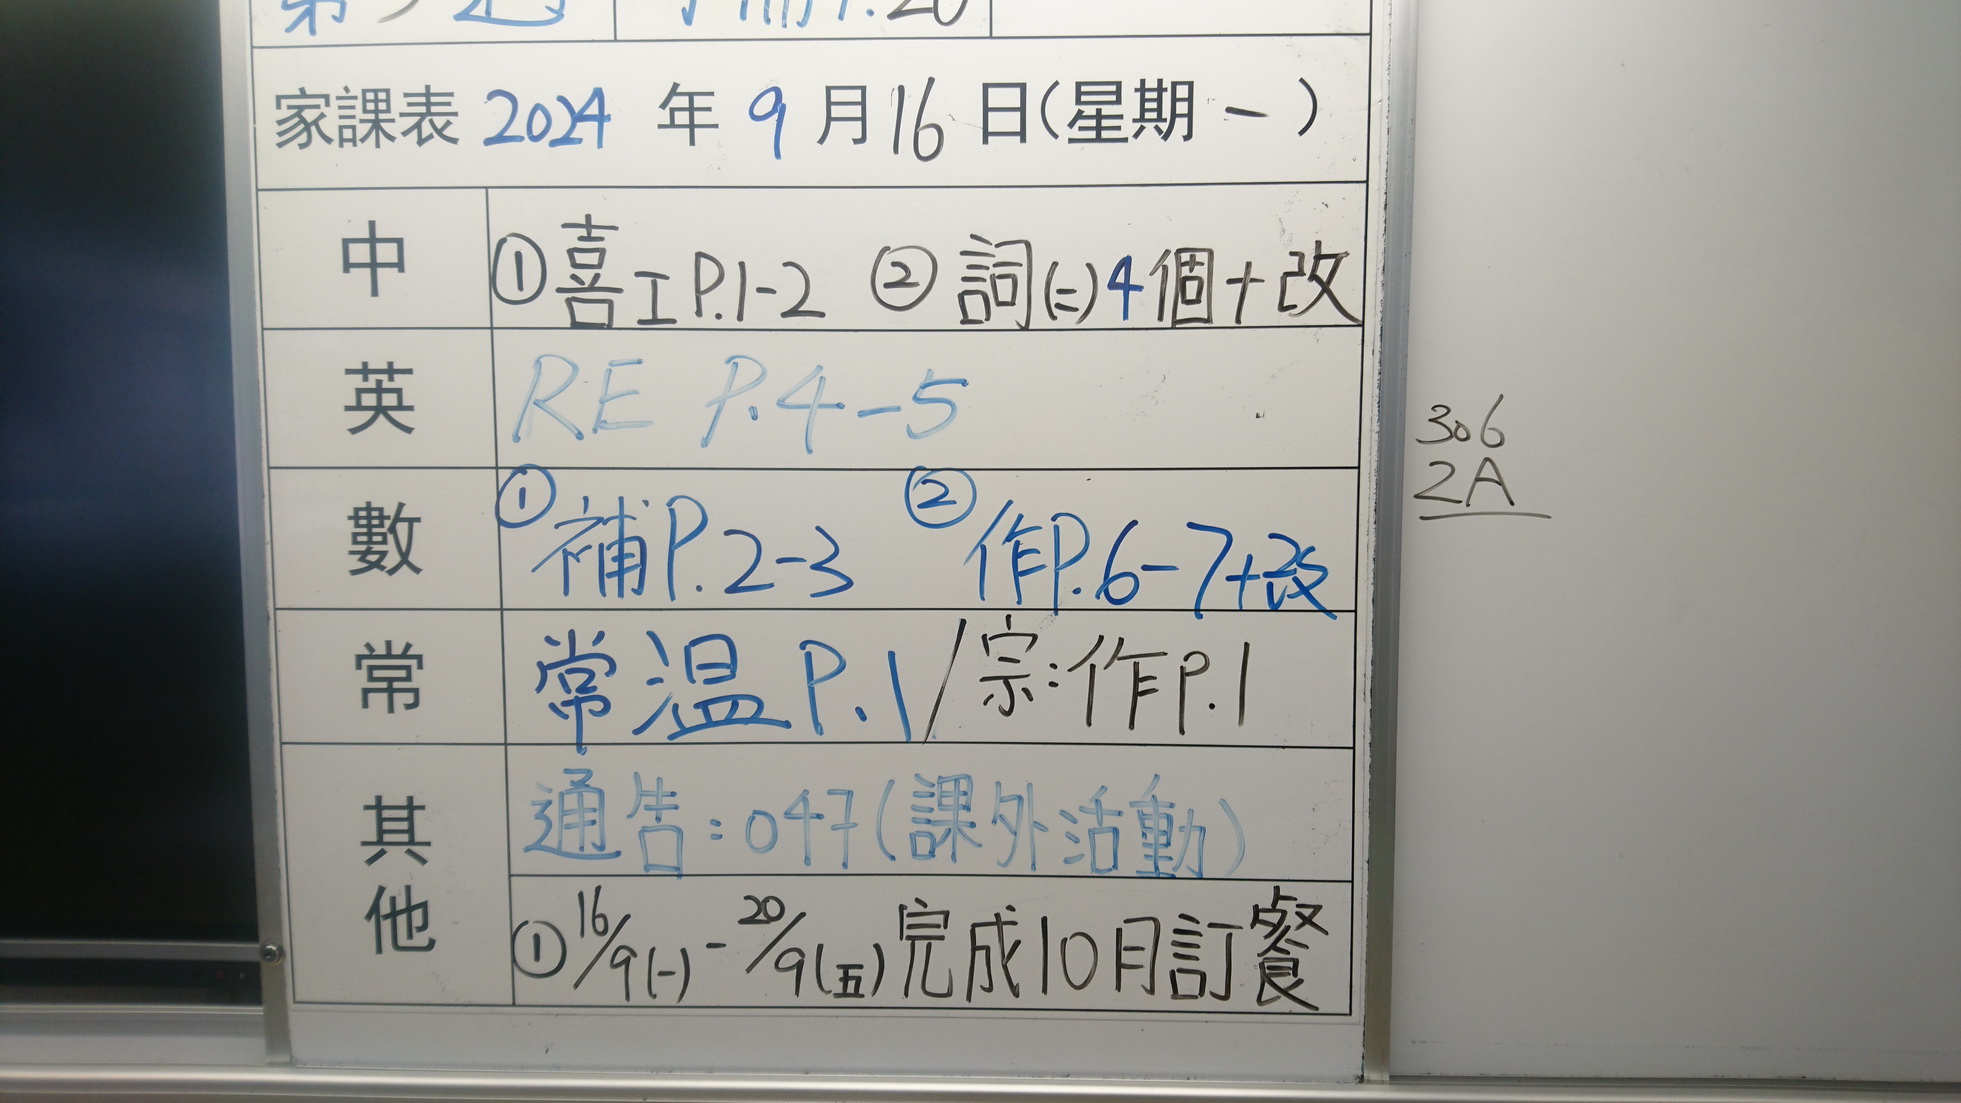 第3週 手冊P.20
家課表 2024 年 9 月 16 日(星期一)
中 ①喜工P.1-2 ②詞(二)4個+改
英 RE P.4-5
數 ①補P.2-3 ②作P.6-7+改
常 常温P.1/宗:作P.1
其他 通告:047(課外活動)
①16/9(一)-20/9(五)完成10月訂餐
306
2A